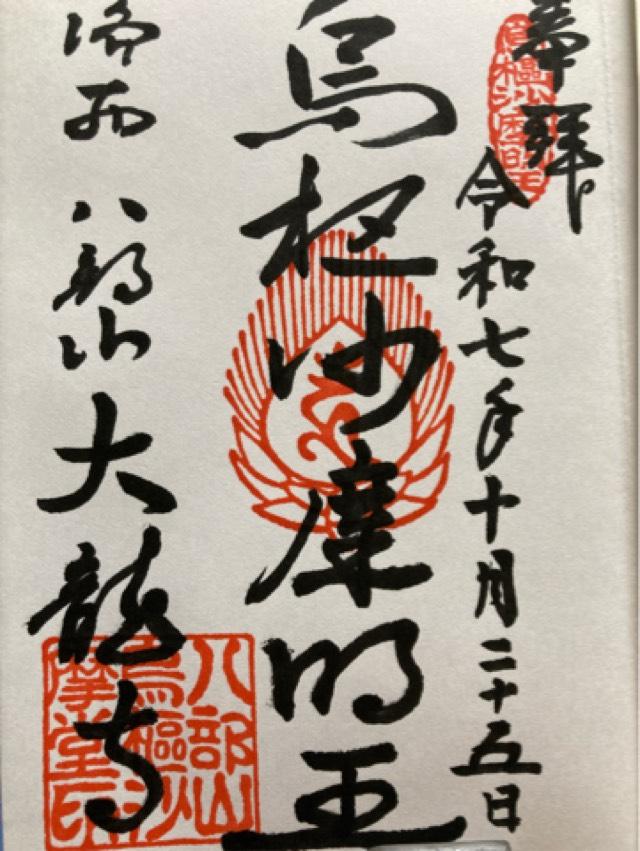 奉拝
令和七年十月二十五日
烏枢沙摩明王
八部山 大龍寺
烏樞沙摩明王
八部山
烏樞沙
摩堂印